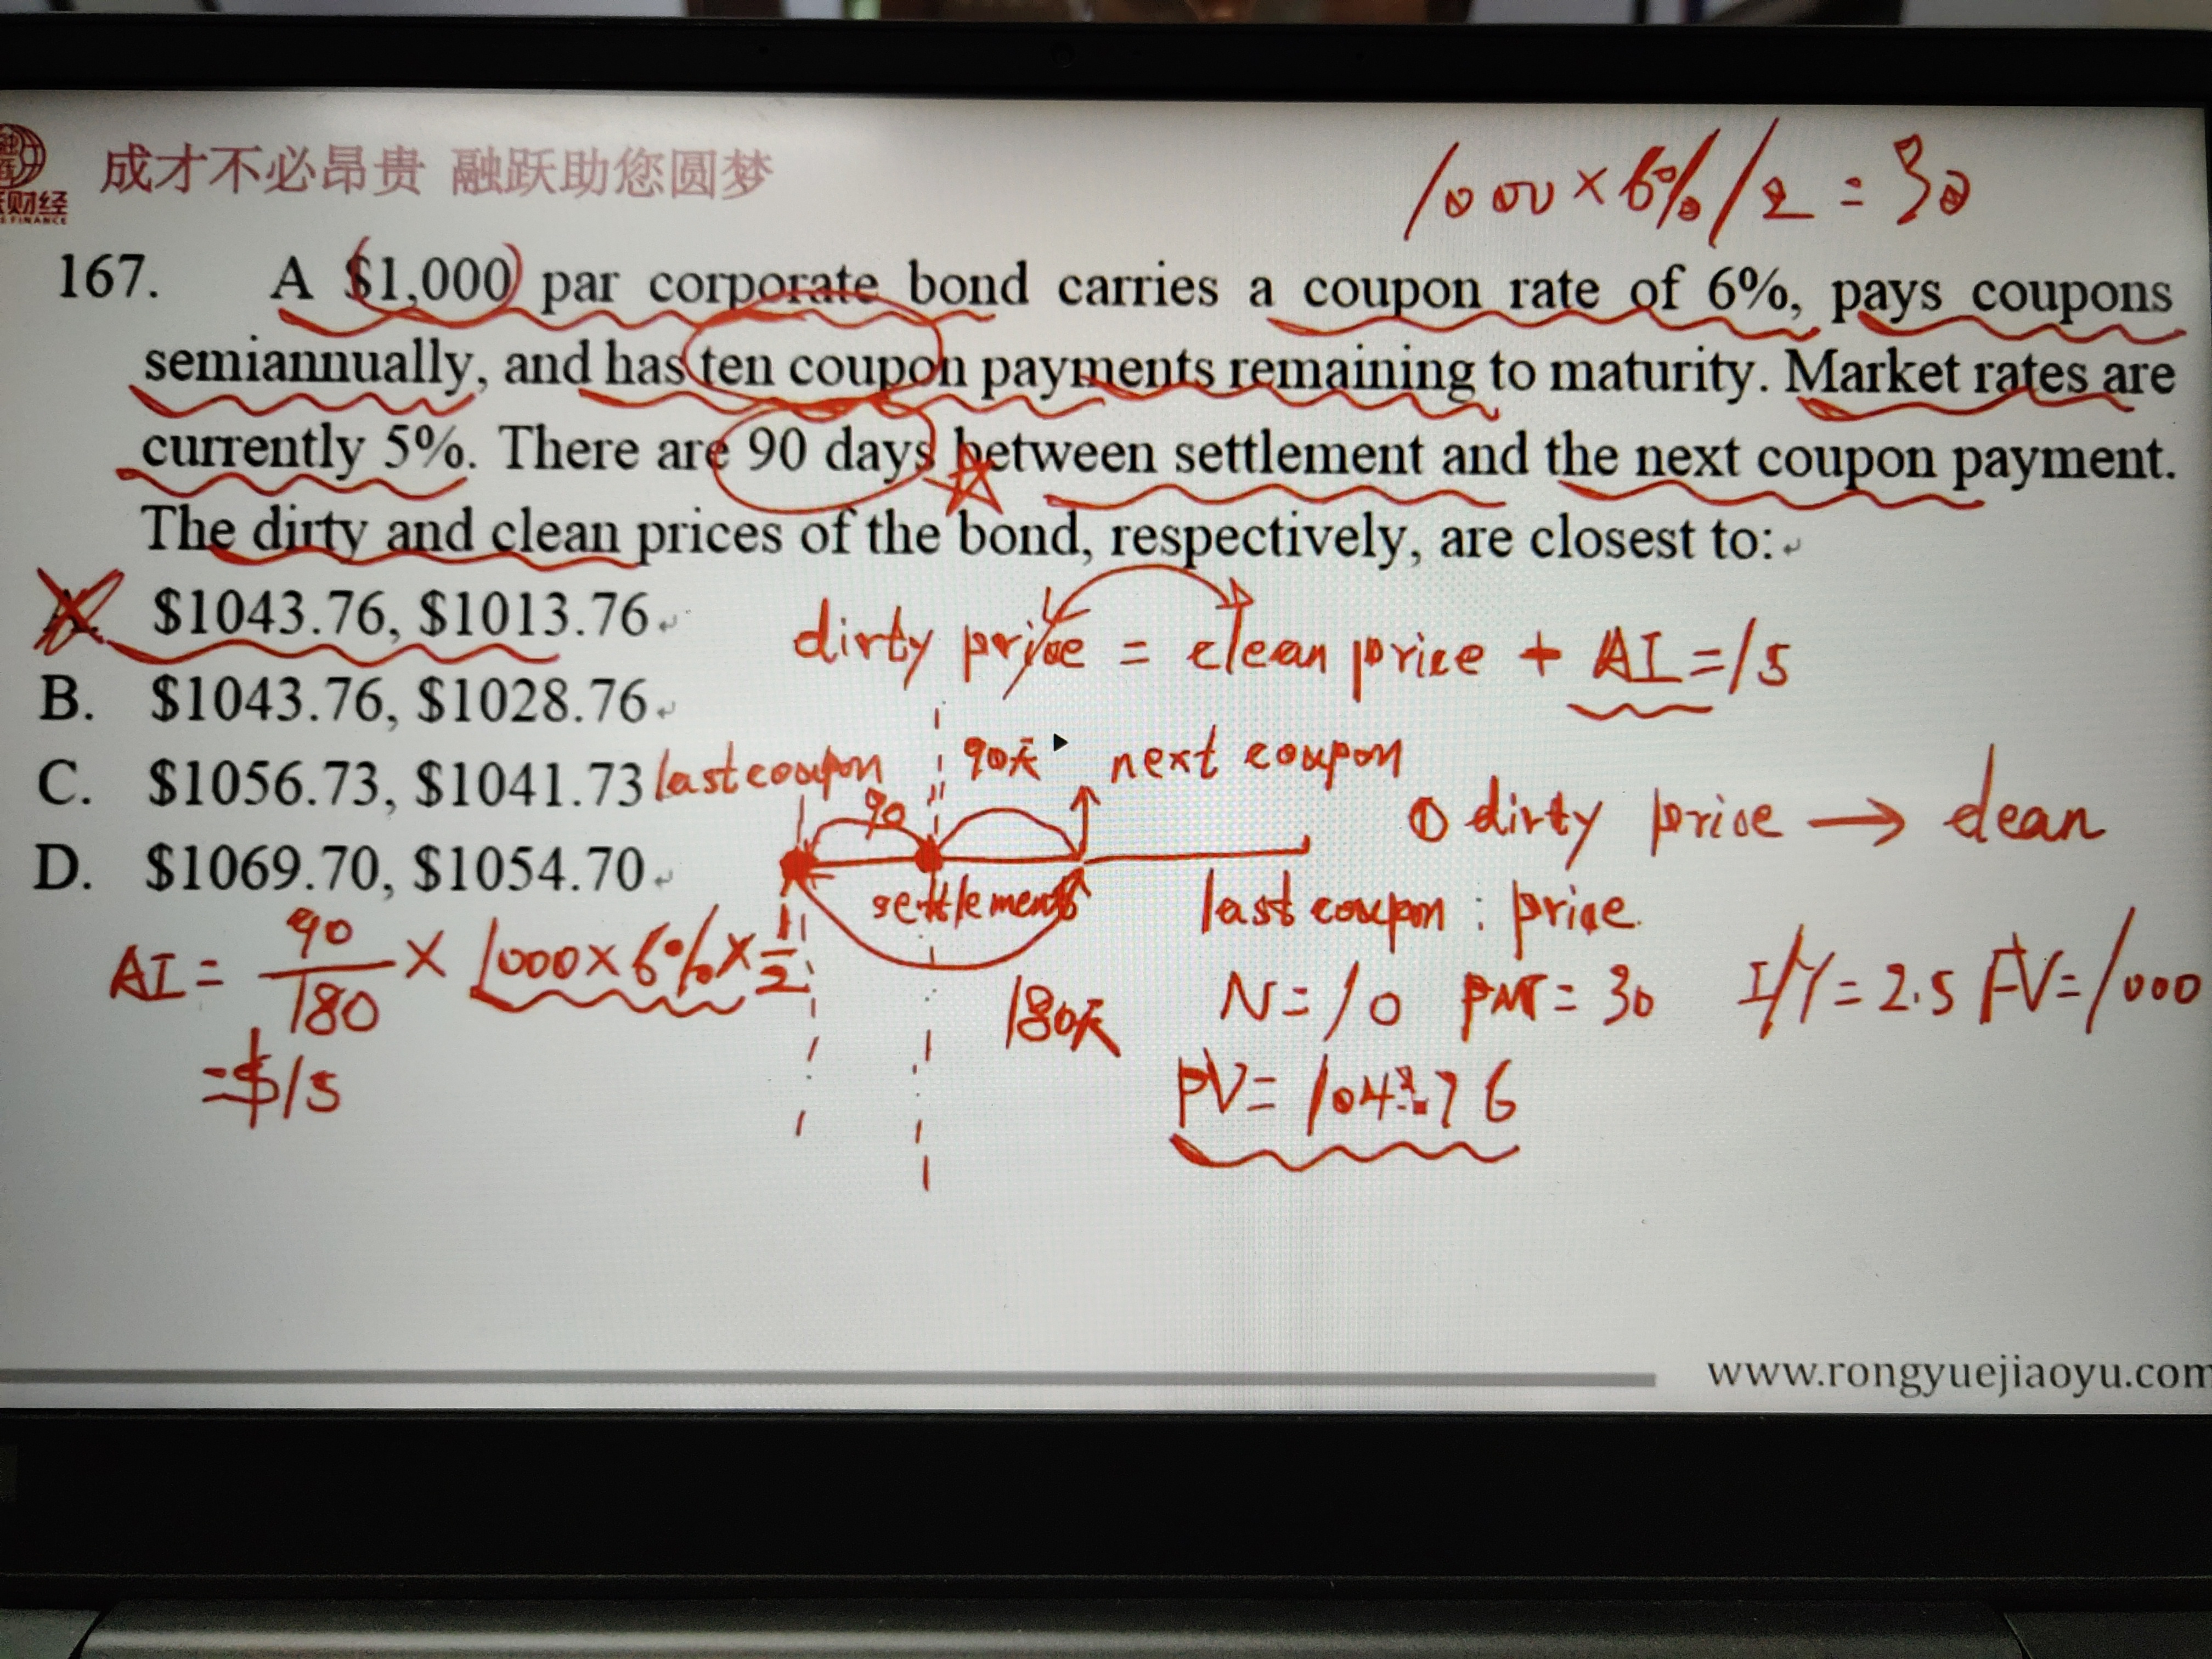 成才不必昂贵 融跃助您圆梦
财经
FINANCE
1000×6%/2=30
167. A $1,000 par corporate bond carries a coupon rate of 6%, pays coupons
semiannually, and has ten coupon payments remaining to maturity. Market rates are
currently 5%. There are 90 days between settlement and the next coupon payment.
The dirty and clean prices of the bond, respectively, are closest to:
A. $1043.76, $1013.76
dirty price = clean price + AI=15
B. $1043.76, $1028.76
C. $1056.73, $1041.73
last coupon 90天 next coupon
90
① dirty price → clean
D. $1069.70, $1054.70
settlement
last coupon : price
AI = 90/180 × 1000×6%×1/2
=$15
180天
N=10 PMT=30 I/Y=2.5 FV=1000
PV=1043.76
www.rongyuejiaoyu.com